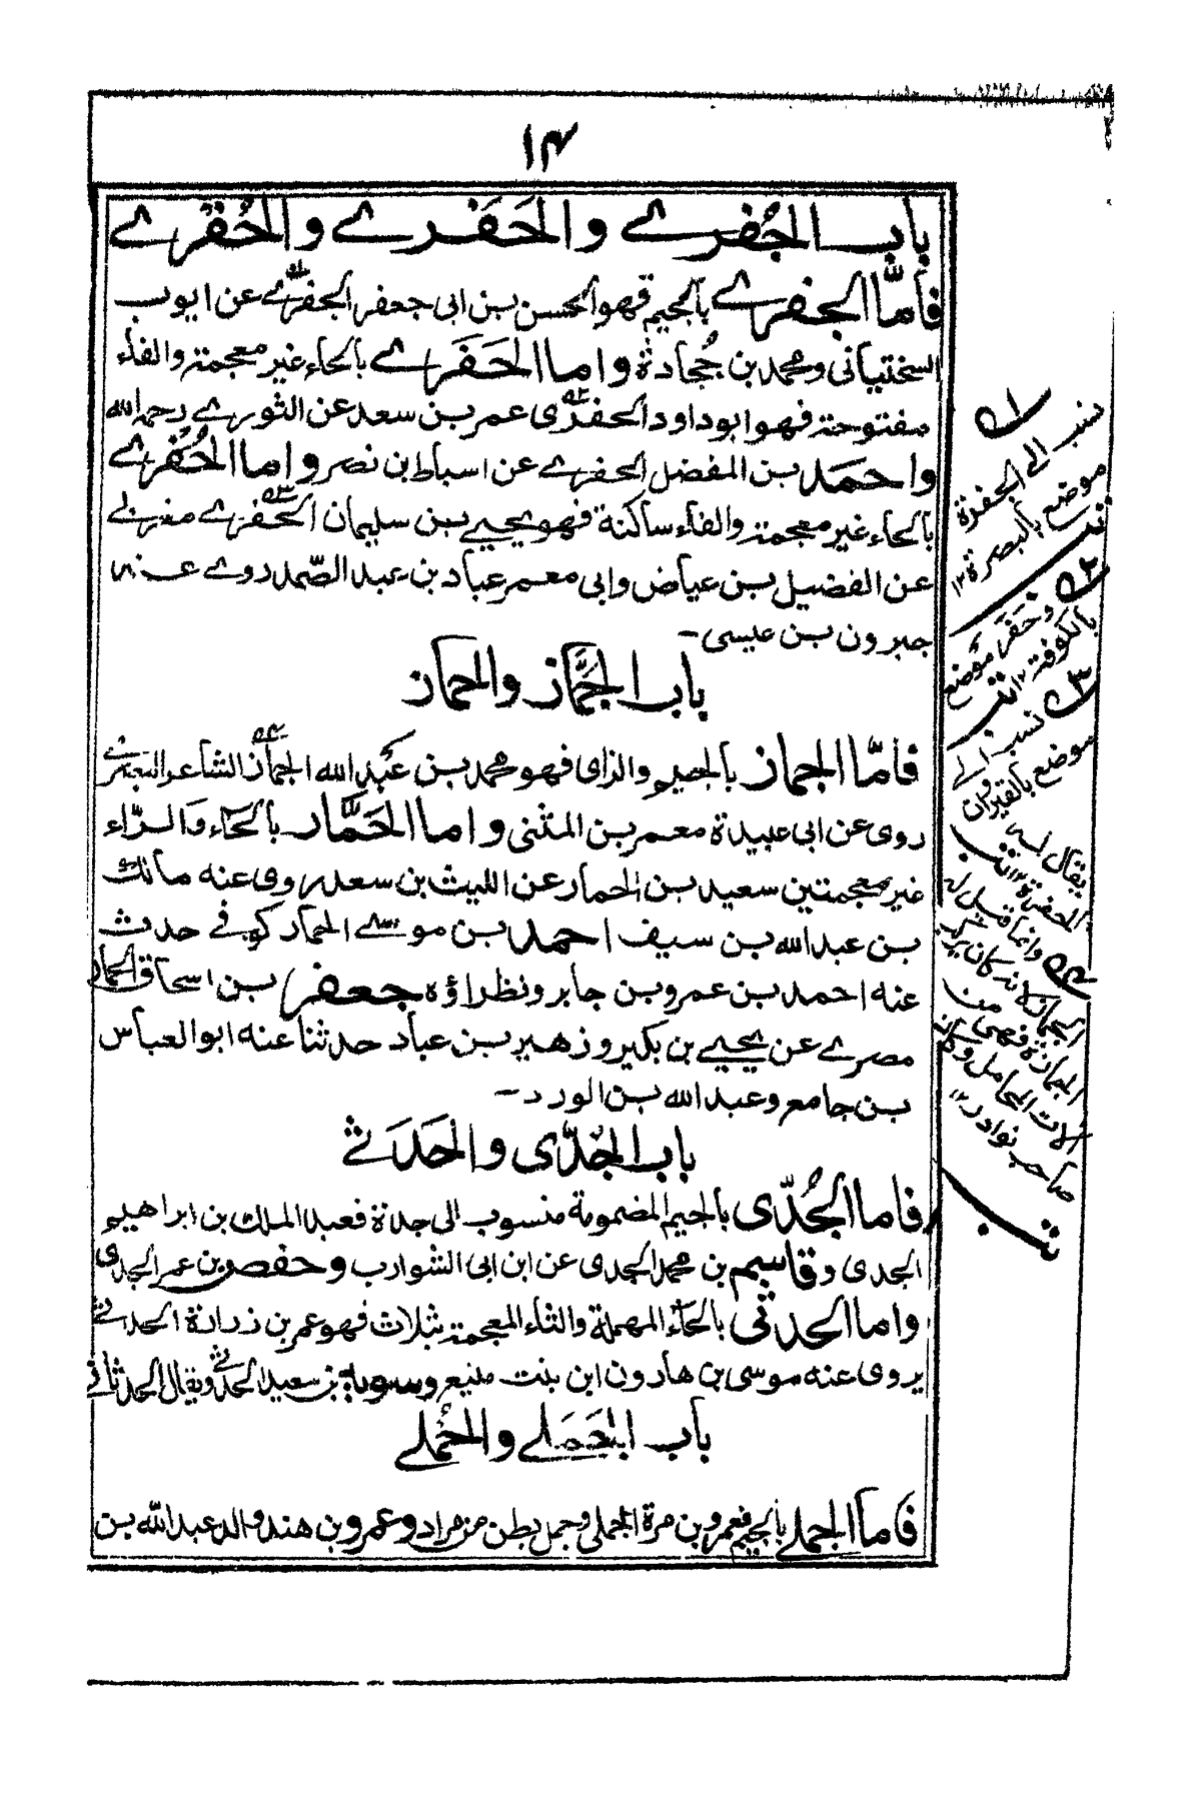 ١٤
باب الجُفرے والحَفَرے والحُفْرے
فامّا الجفرے بالجيم فهو الحسن بن ابى جعفر الجفرے عن ايوب
السختيانى ومحمد بن جُحادة واما الحَفَرے بالحاء غير معجمة والفاء
مفتوحة فهو ابو داود الحفرى عمر بن سعد عن الثورے رحمه الله
واحمَد بن المفضل الحفرے عن اسباط بن نصر واما الحُفْرے
بالحاء غير معجمة والفاء ساكنة فهو يحيے بن سليمان الحفرے مغربے
عن الفضيل بن عياض وابى معمر عباد بن عبد الصّمد روے عنه
جبرون بن عيسى
باب الجَمَّاز والحمار
فامّا الجماز بالجيم والزاى فهو محمد بن عبد الله الجماز الشاعر البصرے
روى عن ابى عبيدة معمر بن المثنى واما الحَمَّار بالحاء والراء
غير معجمتين سعيد بن الحمار عن الليث بن سعد روى عنه مالك
بن عبد الله بن سيف احمد بن موسے الحمار كوفے حدث
عنه احمد بن عمرو بن جابر ونظراؤه جعفر بن اسحاق الحمار
مصرے عن يحيے بن بكير وزهير بن عباد حدثنا عنه ابو العباس
بن جامع وعبد الله بن الورد
باب الجُدّى والحَدَثے
فاما الجُدّى بالجيم المضمومة منسوب الى جدة فعبد الملك بن ابراهيم
الجدى وقاسم بن محمد الجدى عن ابن ابى الشوارب وحفص بن عمر الجدى
واما الحدثى بالحاء المهملة والثاء المعجمة بثلاث فهو عمر بن زرارة الحدثے
يروى عنه موسى بن هارون ابن بنت منيع وسويد بن سعيد الحدثے ويقال الحدثانى
باب الجَمَلے والحُملے
فاما الجملے بالجيم فعمرو بن مرة الجملى وجمل بطن من مراد وعمرو بن هند والد عبد الله بن
١ه
نسب الى الجفرة
موضع بالبصرة ١٢
٢ه
وحَفَر موضع
بالكوفة ١٢
٣ه
نسب الے
موضع بالقيروان
يقال له
الحفرة ١٢
٤ه وانما قيل له
الجماز لانه كان يركب
الجمازة فهى من
الات المحامل وكان
صاحب نوادر ١٢